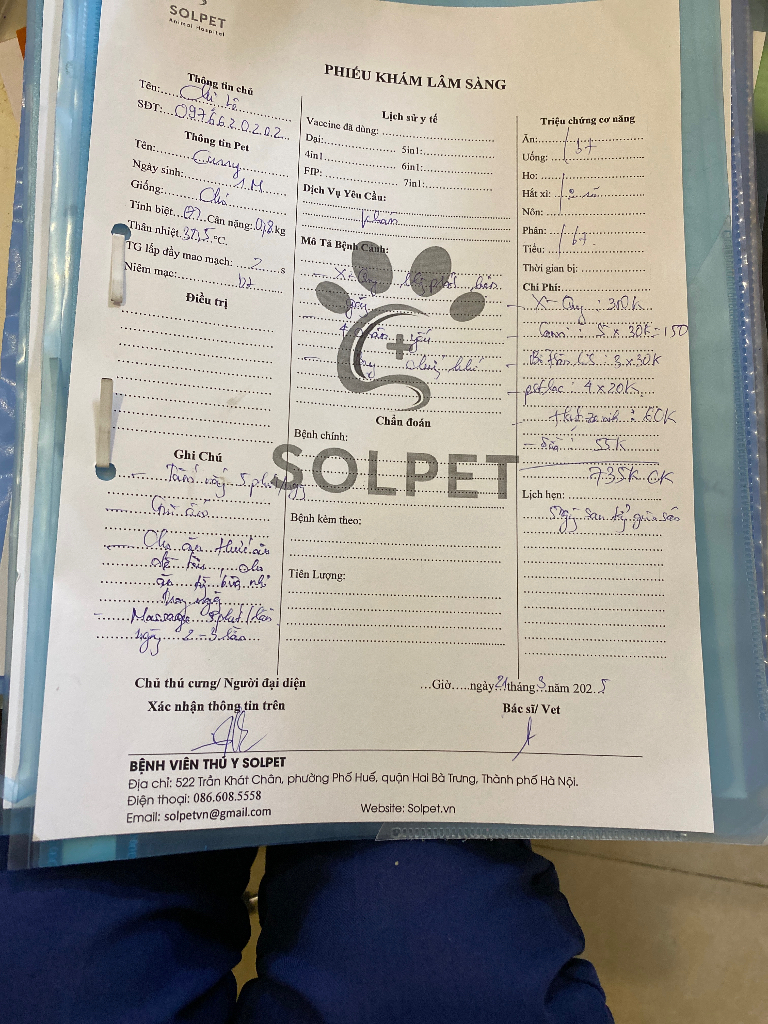 SOLPET
Animal Hospital
PHIẾU KHÁM LÂM SÀNG
Thông tin chủ
Tên:
SĐT: 0976620202
Thông tin Pet
Tên: Curry
Ngày sinh: 1M
Giống: Chó
Tính biệt Cân nặng: 0,8 kg
Thân nhiệt 37,5 °C.
TG lấp đầy mao mạch: 2 s
Niêm mạc: bt
Điều trị
Ghi Chú
- Tắm nắng 5 phút/ngày
- Giữ ấm
- Cho ăn thức ăn
dễ tiêu, cho
ăn
trong ngày
- Massage 5 phút/lần
ngày 2-3 lần
Lịch sử y tế
Vaccine đã dùng:
Dại: 5in1:
4in1 6in1:
FIP: 7in1:
Dịch Vụ Yêu Cầu:
khám
Mô Tả Bệnh Cảnh:
- X-Quay
gãy
4 chân yếu
Chẩn đoán
Bệnh chính:
SOLPET
Bệnh kèm theo:
Tiên Lượng:
Triệu chứng cơ năng
Ăn: bt
Uống:
Ho:
Hắt xì:
Nôn:
Phân: bt
Tiểu:
Thời gian bị:
Chi Phí:
- X-Quay: 300k
- Canxi: 5 x 30k = 150
- : 3 x 30k
- : 4 x 20k
- : 60k
- : 55k
735k CK
Lịch hẹn:
Chủ thú cưng/ Người đại diện
Xác nhận thông tin trên
...Giờ.....ngày 21 tháng 3 năm 2025
Bác sĩ/ Vet
BỆNH VIỆN THÚ Y SOLPET
Địa chỉ: 522 Trần Khát Chân, phường Phố Huế, quận Hai Bà Trưng, Thành phố Hà Nội.
Điện thoại: 086.608.5558
Email: solpetvn@gmail.com Website: Solpet.vn